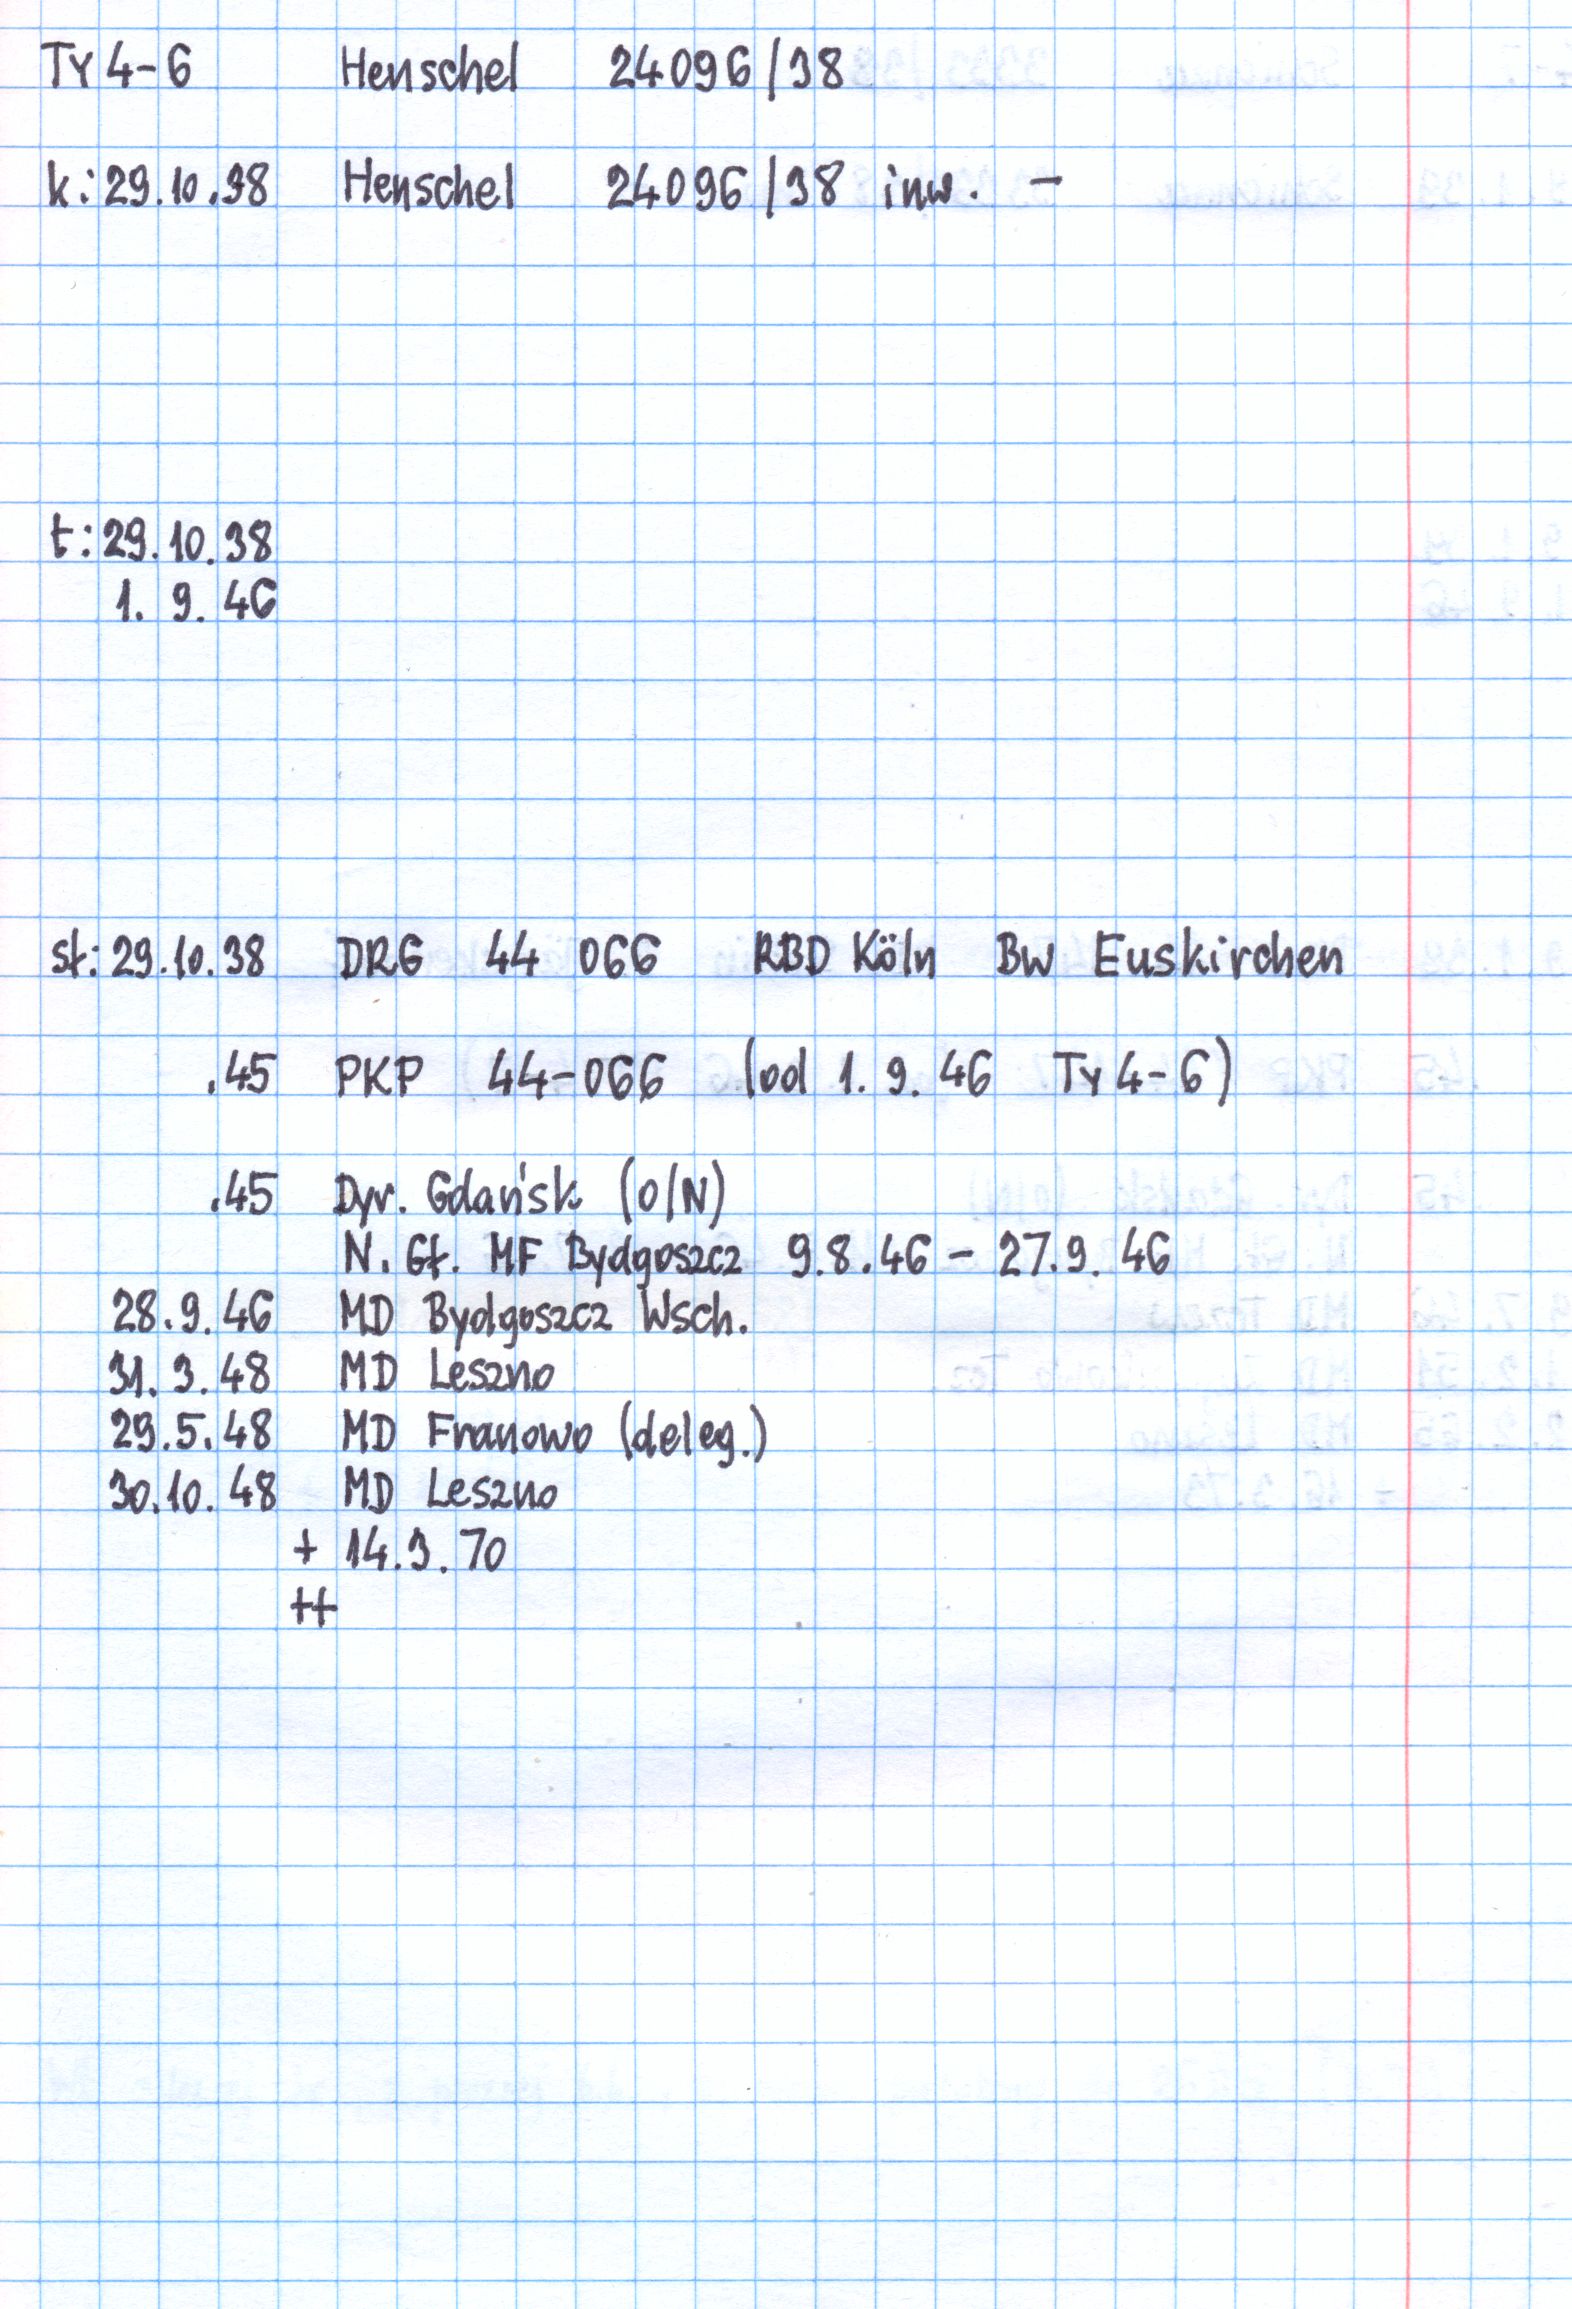 Ty 4-6 Henschel 24096/38
k: 29.10.38 Henschel 24096/38 inw. -
t: 29.10.38
1. 9. 46
st: 29.10.38 DRG 44 066 RBD Köln Bw Euskirchen
.45 PKP 44-066 (od 1. 9. 46 Ty 4-6)
.45 Dyr. Gdańsk (O/N)
N. Gł. MF Bydgoszcz 9.8.46 - 27.9.46
28.9.46 MD Bydgoszcz Wsch.
31.3.48 MD Leszno
29.5.48 MD Franowo (deleg.)
30.10.48 MD Leszno
+ 14.3.70
++